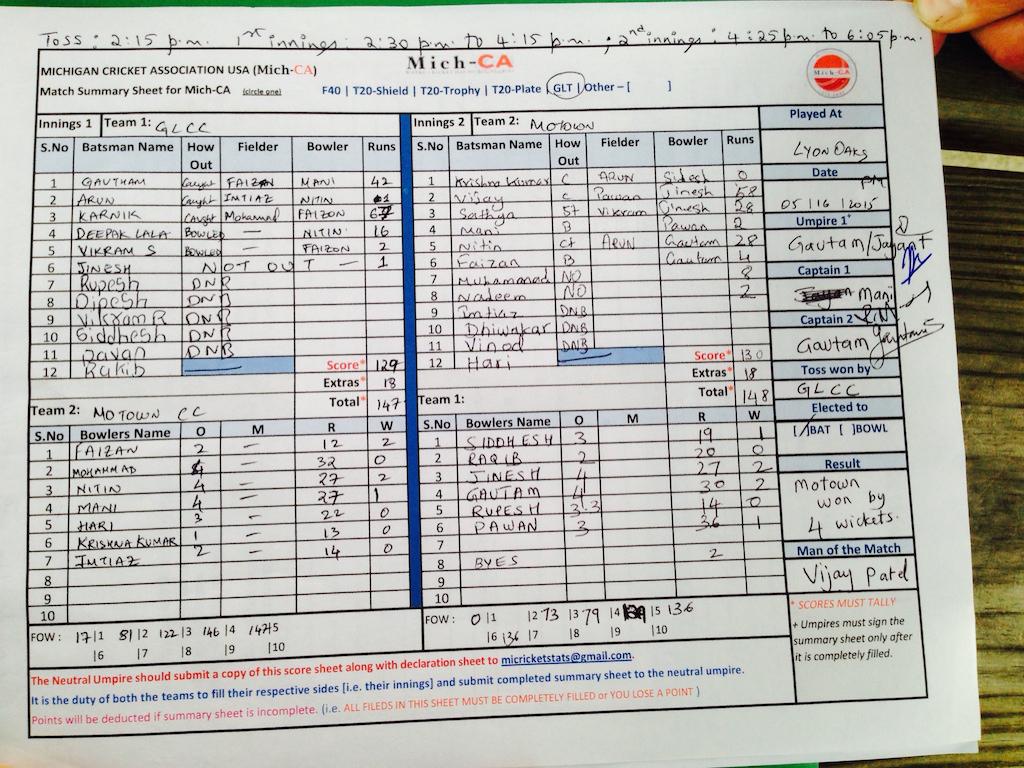 Toss: 2:15 p.m. 1st innings: 2:30 p.m. to 4:15 p.m. ; 2nd innings: 4:25 p.m. to 6:05 p.m.
MICHIGAN CRICKET ASSOCIATION USA (Mich-CA) Mich-CA
Match Summary Sheet for Mich-CA (circle one) F40 | T20-Shield | T20-Trophy | T20-Plate | GLT | Other – [ ]
Mich-CA
Innings 1 Team 1: GLCC
S.No Batsman Name How Out Fielder Bowler Runs
1 GAUTHAM Caught FAIZAN MANI 42
2 ARUN Caught IMTIAZ NITIN 1
3 KARNIK Caught Mohamad FAIZON 67
4 DEEPAK LALA BOWLED — NITIN 16
5 VIKRAM S BOWLED — FAIZON 2
6 JINESH NOT OUT — 1
7 Rupesh DNB
8 Dipesh DNB
9 Vikram R DNB
10 Siddhesh DNB
11 Pavan DNB
12 Rakib
Score* 129
Extras* 18
Total* 147
Innings 2 Team 2: MOTOWN
S.No Batsman Name How Out Fielder Bowler Runs
1 Krishna Kumar C ARUN Sidesh 0
2 Vijay C Pawan Jinesh 58
3 Sathya St Vikram Jinesh 28
4 Mani B Pawan 2
5 Nitin Ct ARUN Gautam 28
6 Faizan B Gautam 4
7 Muhammad NO 8
8 Nadeem NO 2
9 Imtiaz DNB
10 Dhiwakar DNB
11 Vinod DNB
12 Hari
Score* 130
Extras* 18
Total* 148
Team 2: MOTOWN CC
S.No Bowlers Name O M R W
1 FAIZAN 2 — 12 2
2 MOHAMMAD 4 — 32 0
3 NITIN 4 — 27 2
4 MANI 4 — 27 1
5 HARI 3 — 22 0
6 KRISHNA KUMAR 1 — 13 0
7 IMTIAZ 2 — 14 0
8
9
10
FOW : 17|1 81|2 122|3 146|4 147|5
|6 |7 |8 |9 |10
Team 1:
S.No Bowlers Name O M R W
1 SIDDHESH 3 19 1
2 RAQIB 2 20 0
3 JINESH 4 27 2
4 GAUTAM 4 30 2
5 RUPESH 3.3 14 0
6 PAWAN 3 36 1
7
8 BYES 2
9
10
FOW : 0|1 |2 73 |3 79 |4 |5 136
|6 136 |7 |8 |9 |10
Played At
LYON OAKS
Date
PM
05 | 16 | 2015
Umpire 1*
Gautam/Jayant
Captain 1
Mani
Captain 2
Gautam
Toss won by
GLCC
Elected to
[/]BAT [ ]BOWL
Result
Motown
won by
4 wickets.
Man of the Match
Vijay Patel
* SCORES MUST TALLY
+ Umpires must sign the
summary sheet only after
it is completely filled.
The Neutral Umpire should submit a copy of this score sheet along with declaration sheet to micricketstats@gmail.com.
It is the duty of both the teams to fill their respective sides [i.e. their innings] and submit completed summary sheet to the neutral umpire.
Points will be deducted if summary sheet is incomplete. (i.e. ALL FILEDS IN THIS SHEET MUST BE COMPLETELY FILLED or YOU LOSE A POINT )